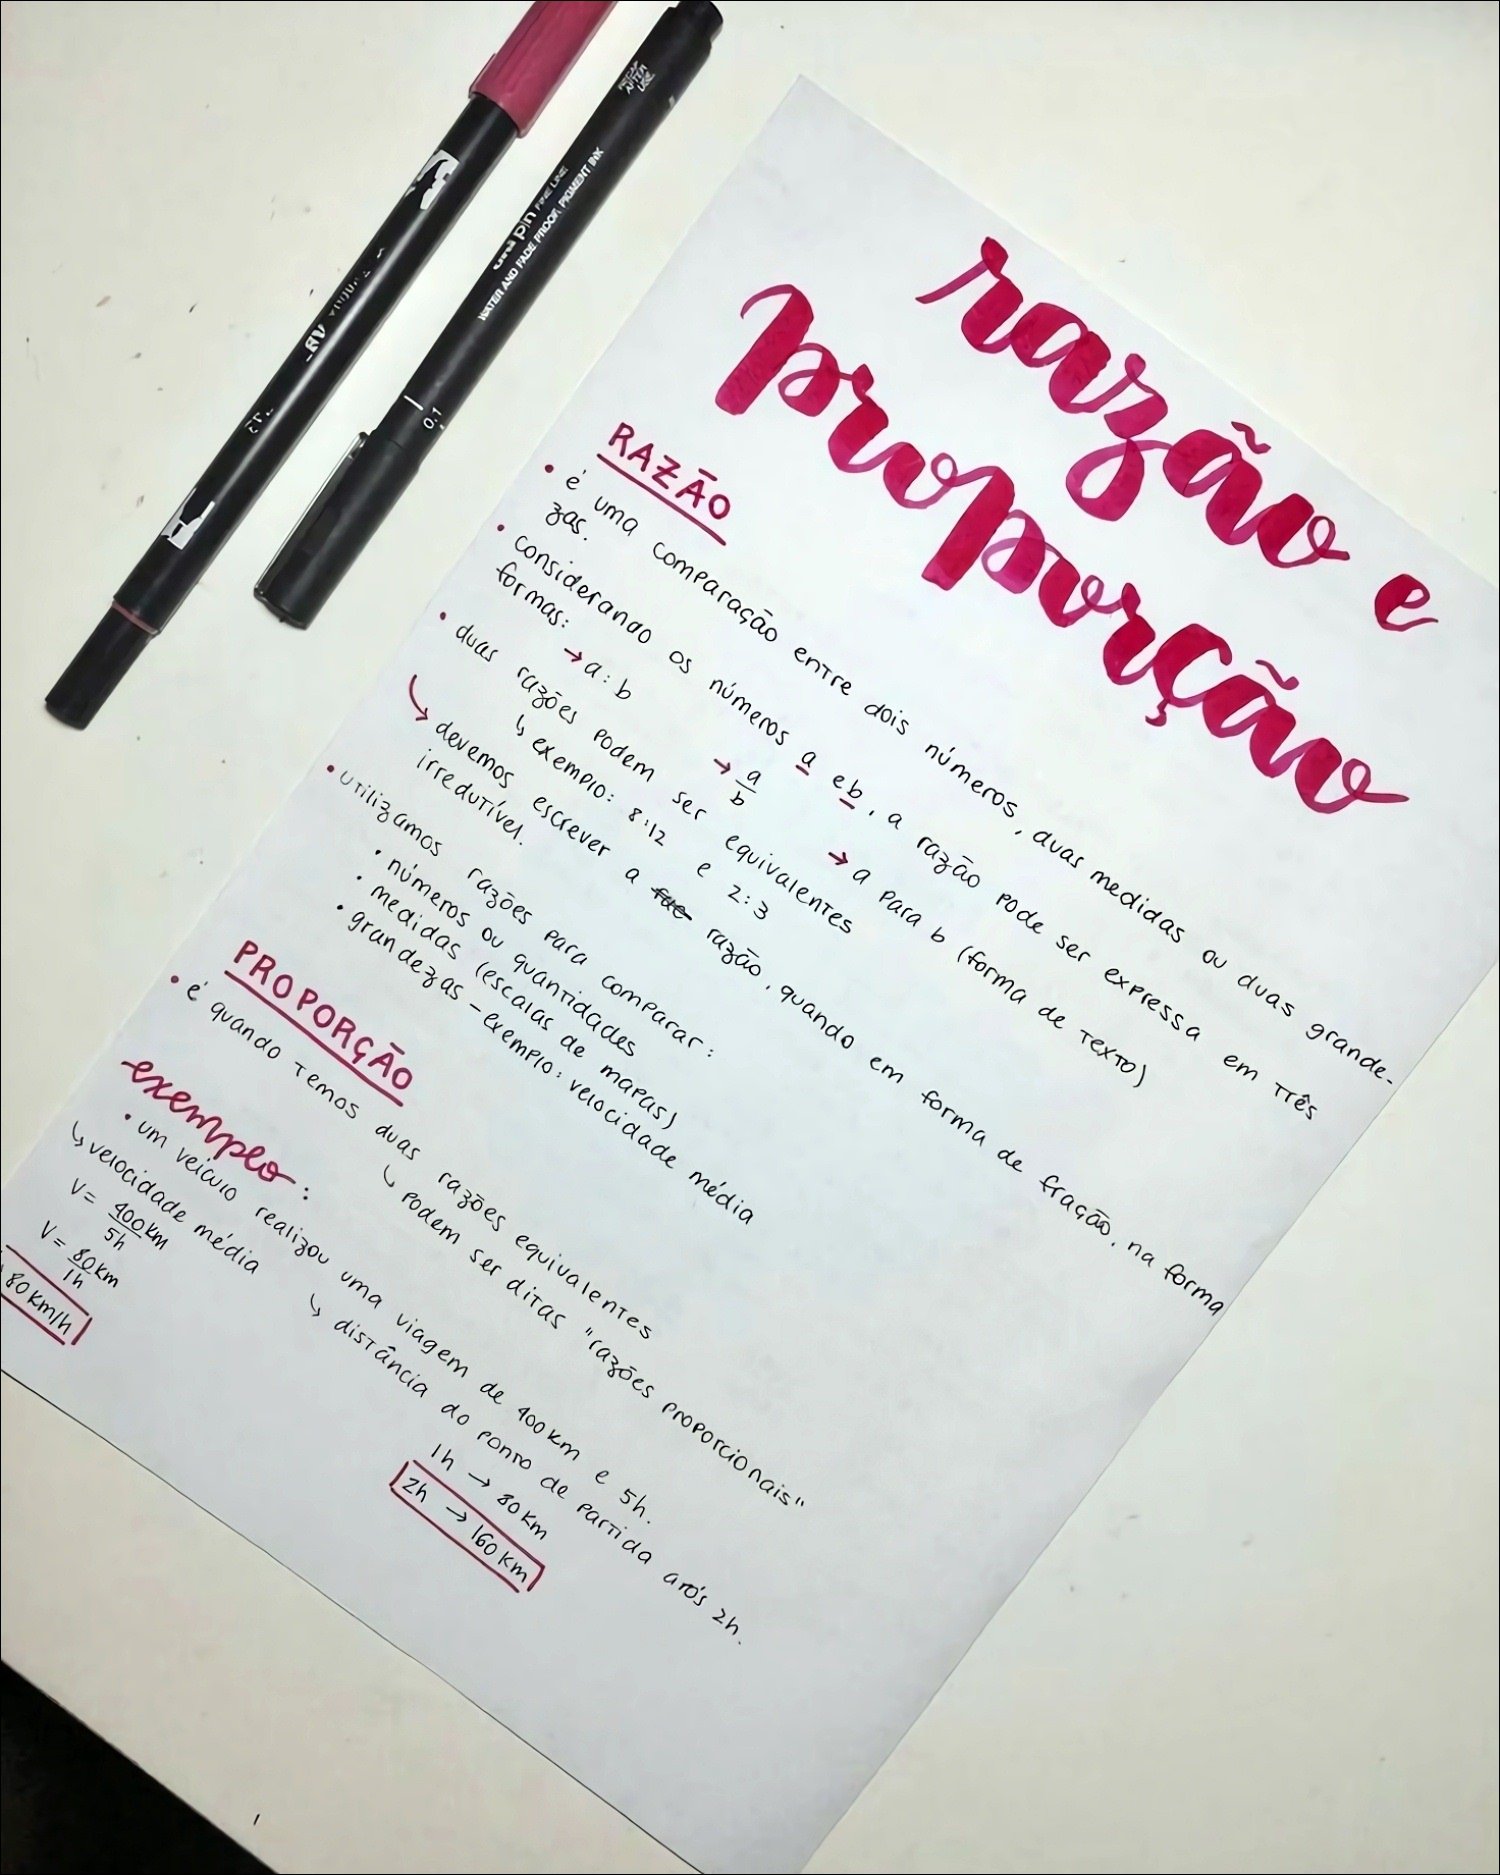 RECAP
AFTER
USE
uni pin FINE LINE
WATER AND FADE PROOF PIGMENT INK
0.1
razão e
proporção
RAZÃO
• é uma comparação entre dois números, duas medidas ou duas grande-
zas.
• considerando os números a e b, a razão pode ser expressa em três
formas: → a : b → a/b → a para b (forma de texto)
• duas razões podem ser equivalentes
↳ exemplo: 8:12 e 2:3
↳ devemos escrever a razão, quando em forma de fração, na forma
irredutível.
• utilizamos razões para comparar:
• números ou quantidades
• medidas (escalas de mapas)
• grandezas - exemplo: velocidade média
PROPORÇÃO
• é quando temos duas razões equivalentes
↳ podem ser ditas "razões proporcionais"
exemplo:
• um veículo realizou uma viagem de 400km e 5h.
↳ velocidade média ↳ distância do ponto de partida após 2h.
V = 400km/5h
V = 80km/1h
80 km/h
1h → 80 km
2h → 160 km